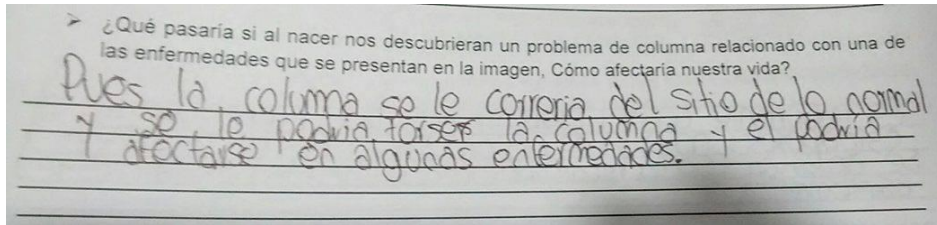 ¿Qué pasaría si al nacer nos descubrieran un problema de columna relacionado con una de
las enfermedades que se presentan en la imagen, Cómo afectaría nuestra vida?
Pues la columna se le correria del sitio de lo normal
y se le podria torser la columna y el podria
afectarse en algunas enfermedades.